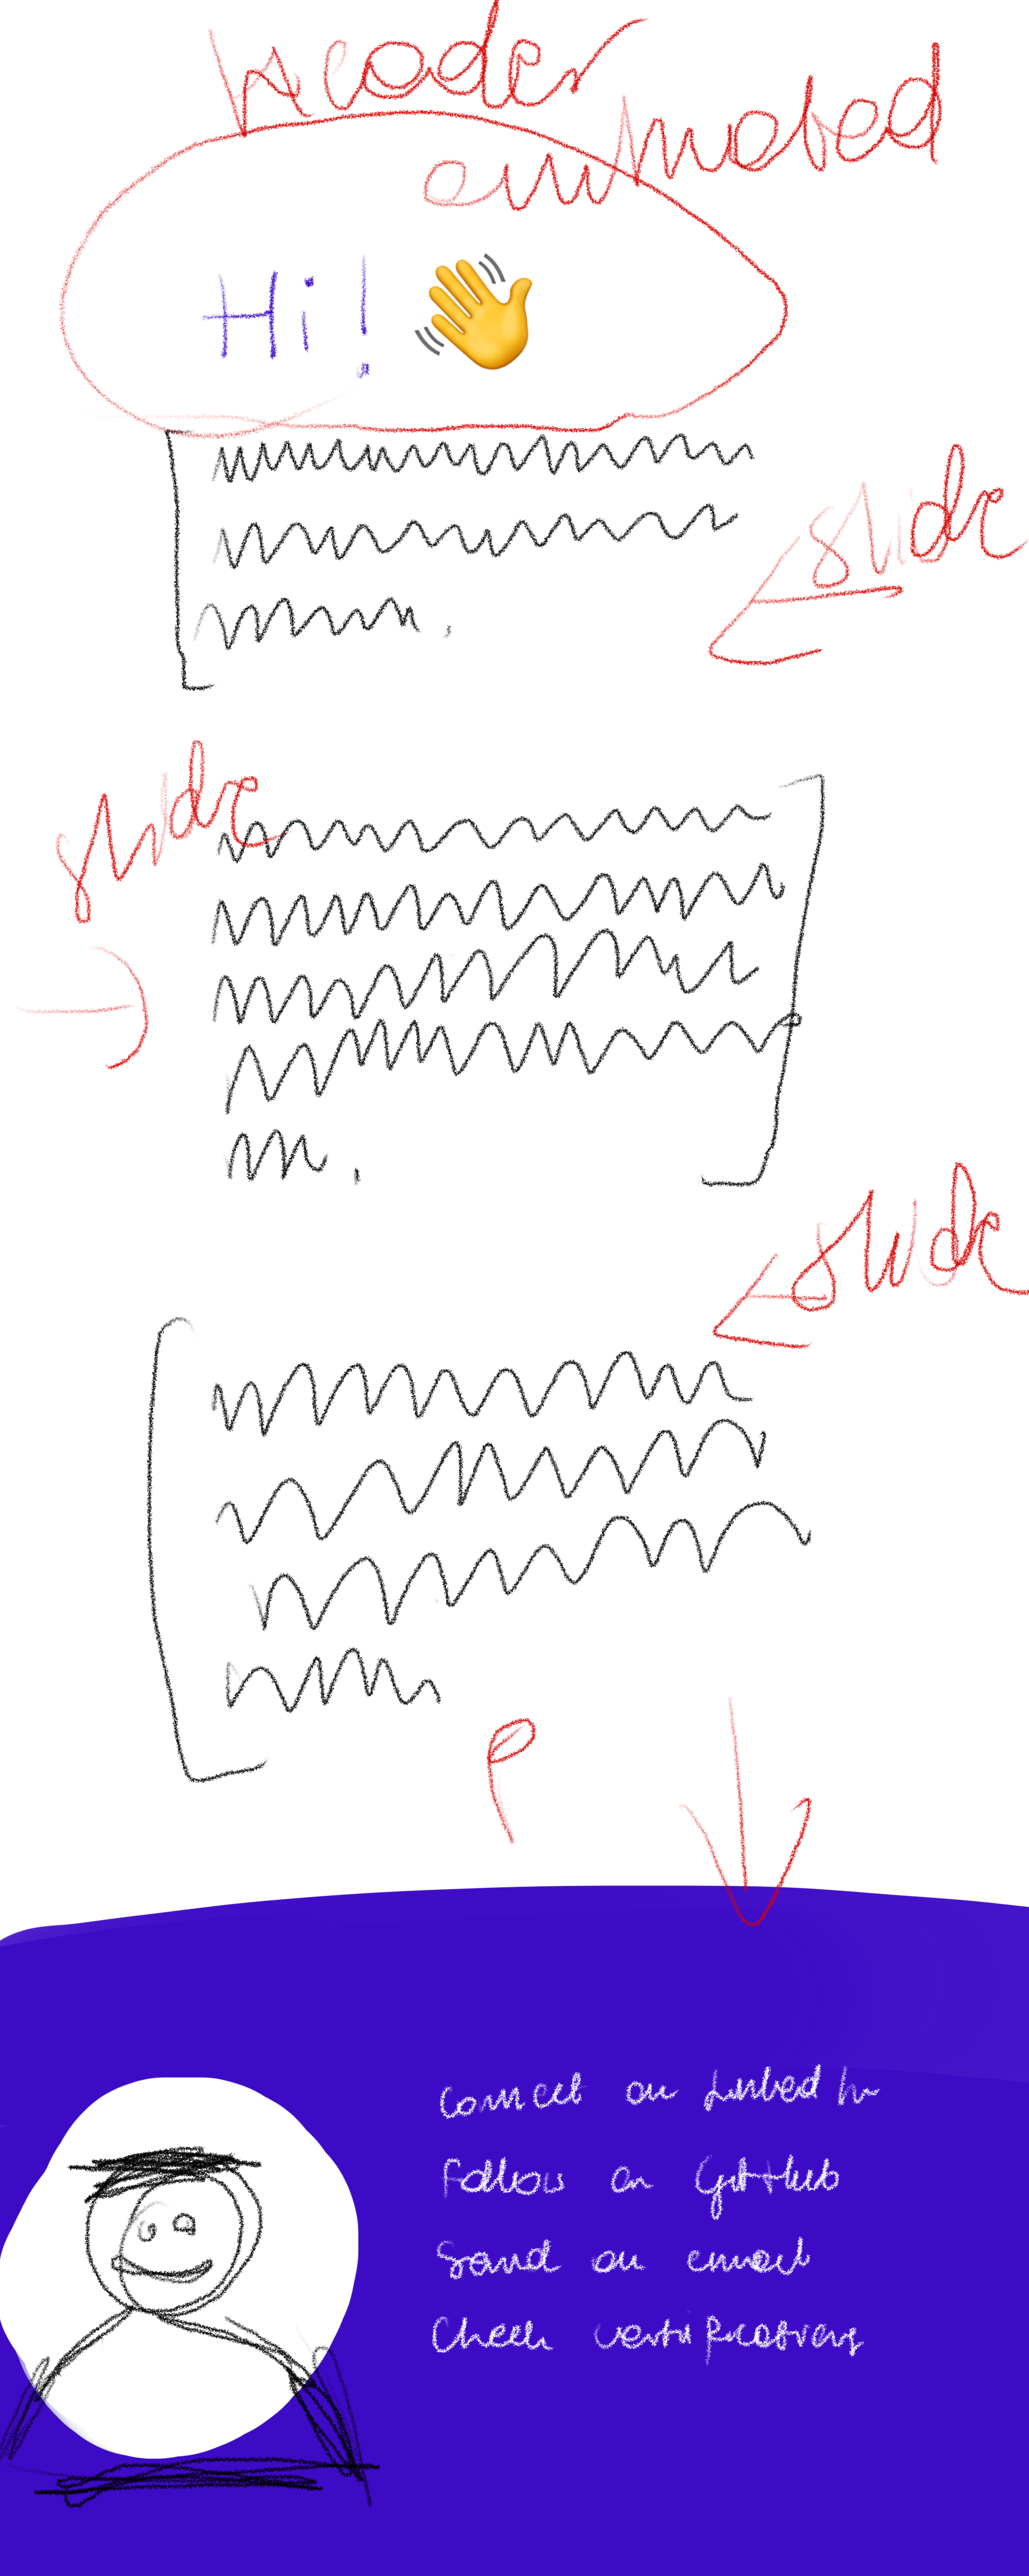 Header
animated
Hi! 👋
slide
slide
slide
Connect on Linked In
Follow on GitHub
Send an email
Check certifications